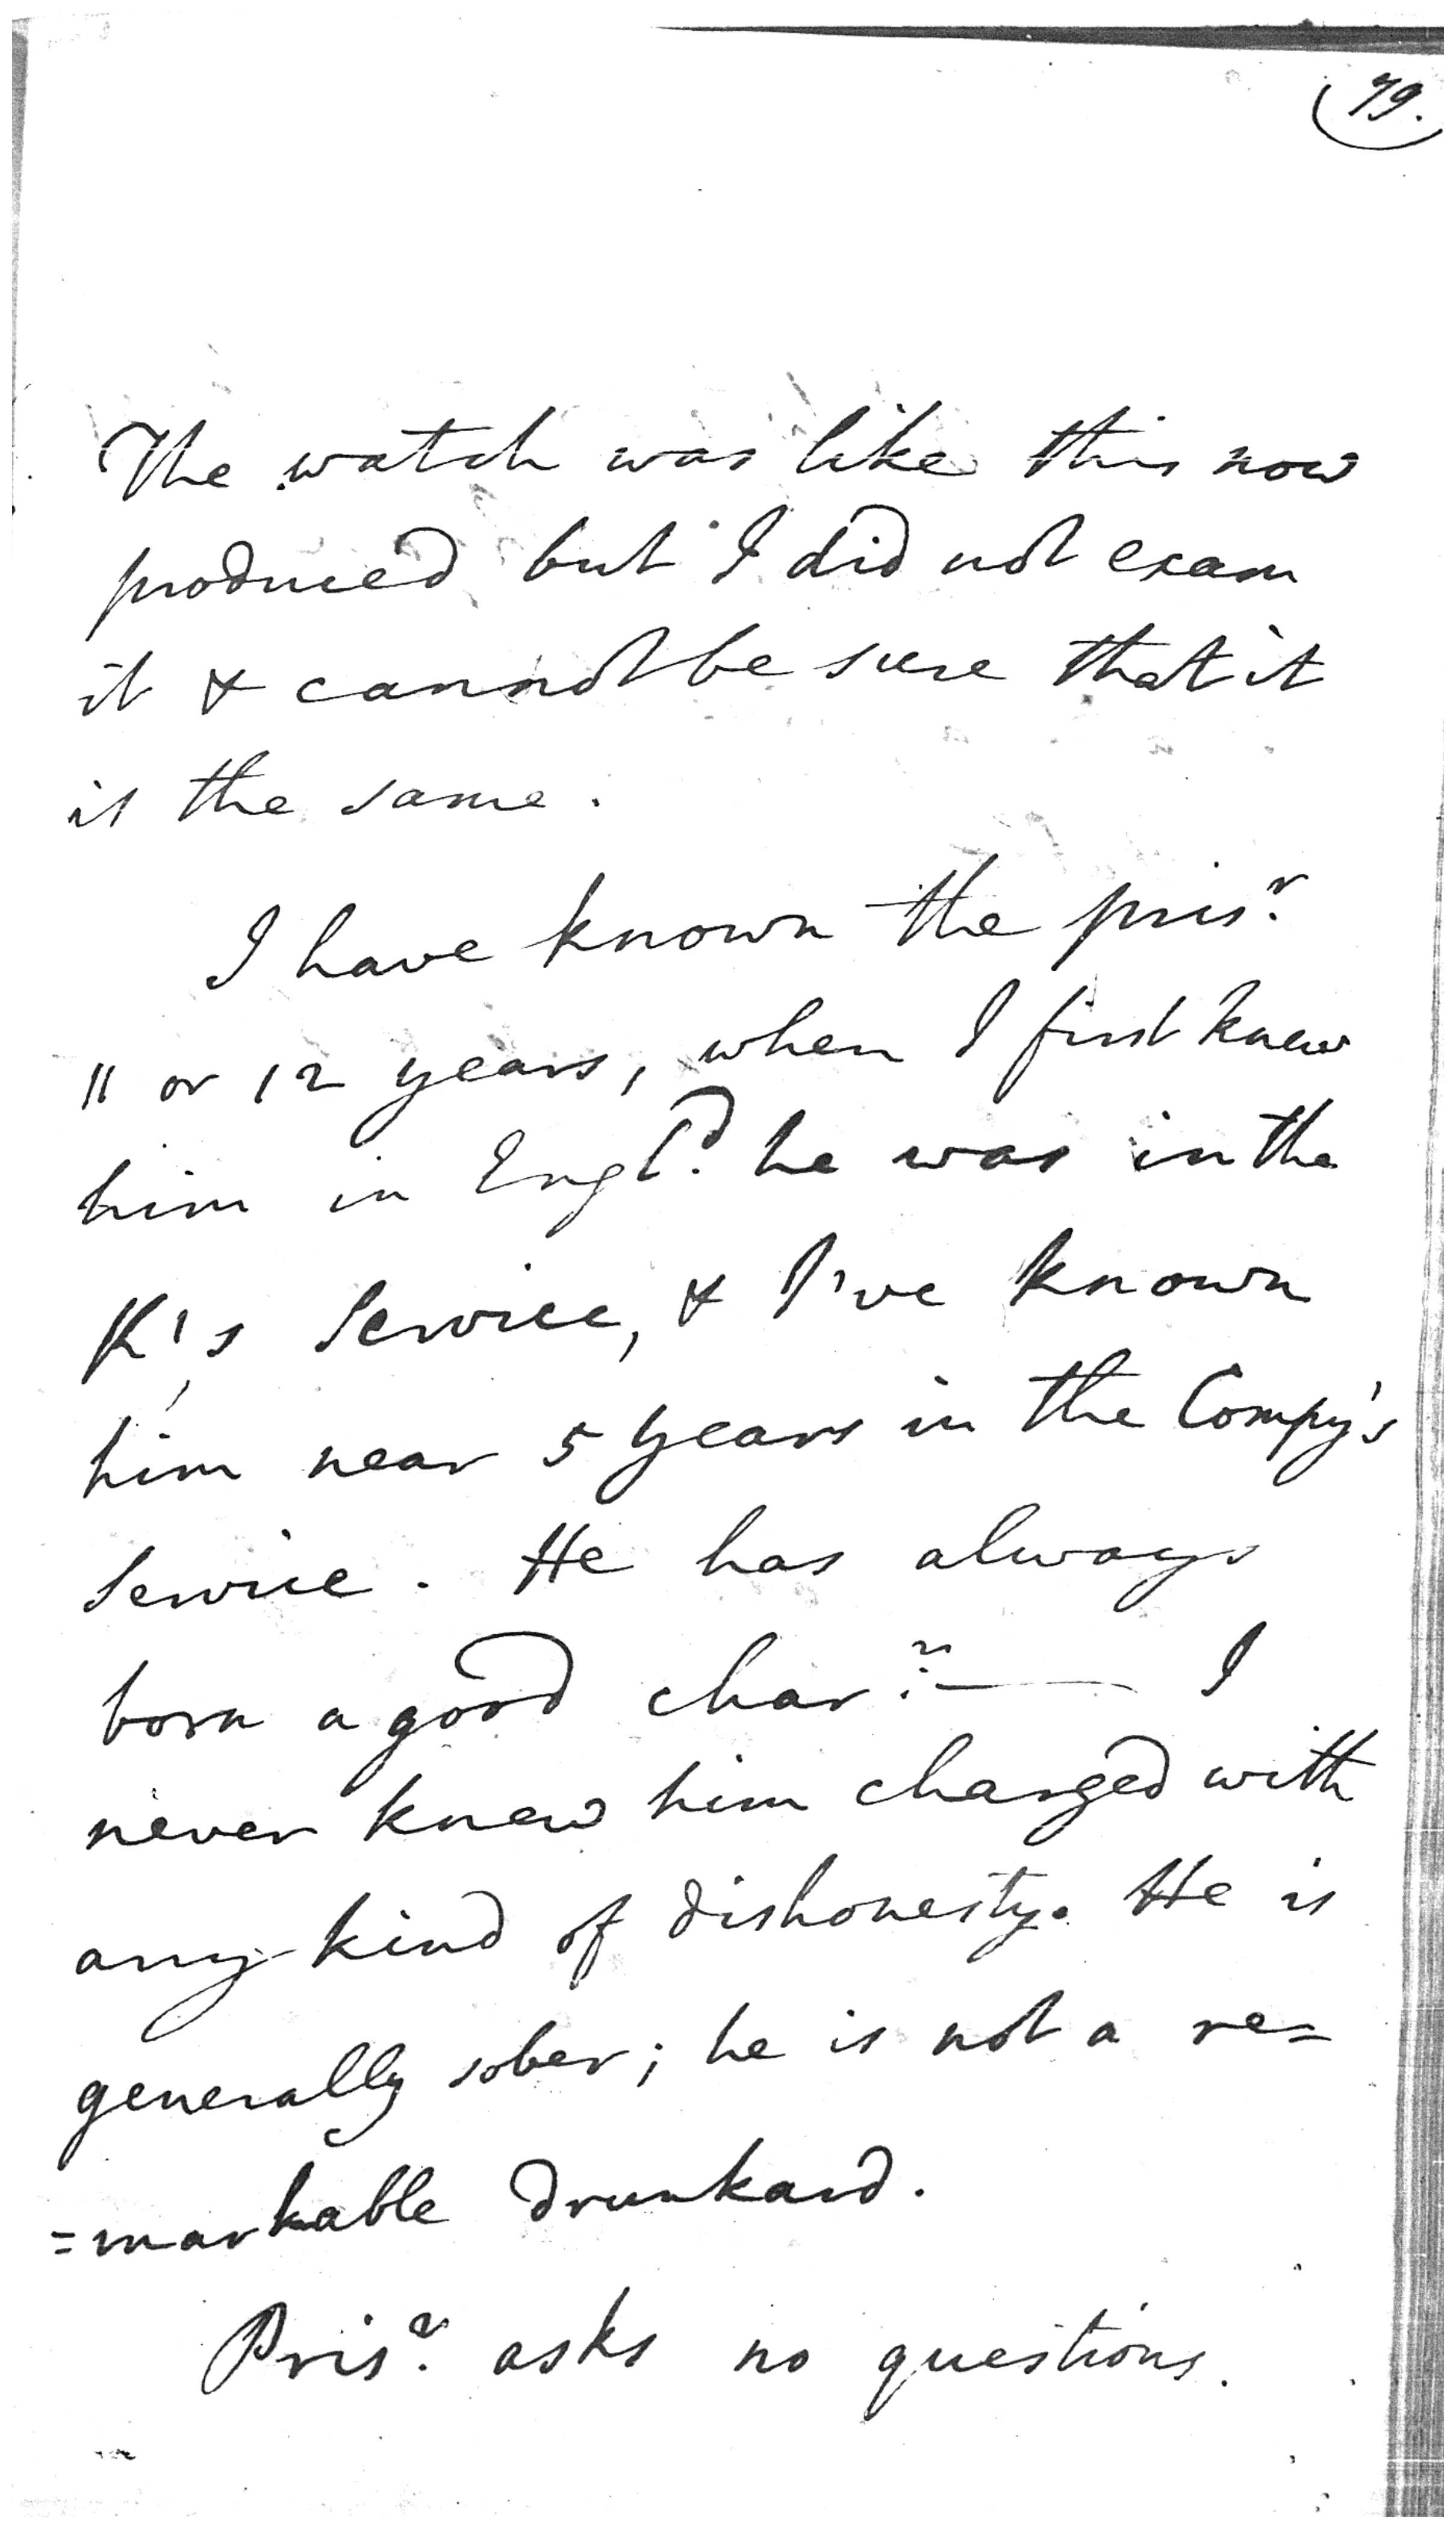 79.
The watch was like this now
produced but I did not exam
it & cannot be sure that it
is the same.
I have known the pris.r
11 or 12 years, when I first knew
him in Engl.d he was in the
K's Service, & I've known
him near 5 years in the Compy's
Service. He has always
born a good char.r — I
never knew him charged with
any kind of dishonesty. He is
generally sober; he is not a re=
=markable drunkard.
Pris.r asks no questions.